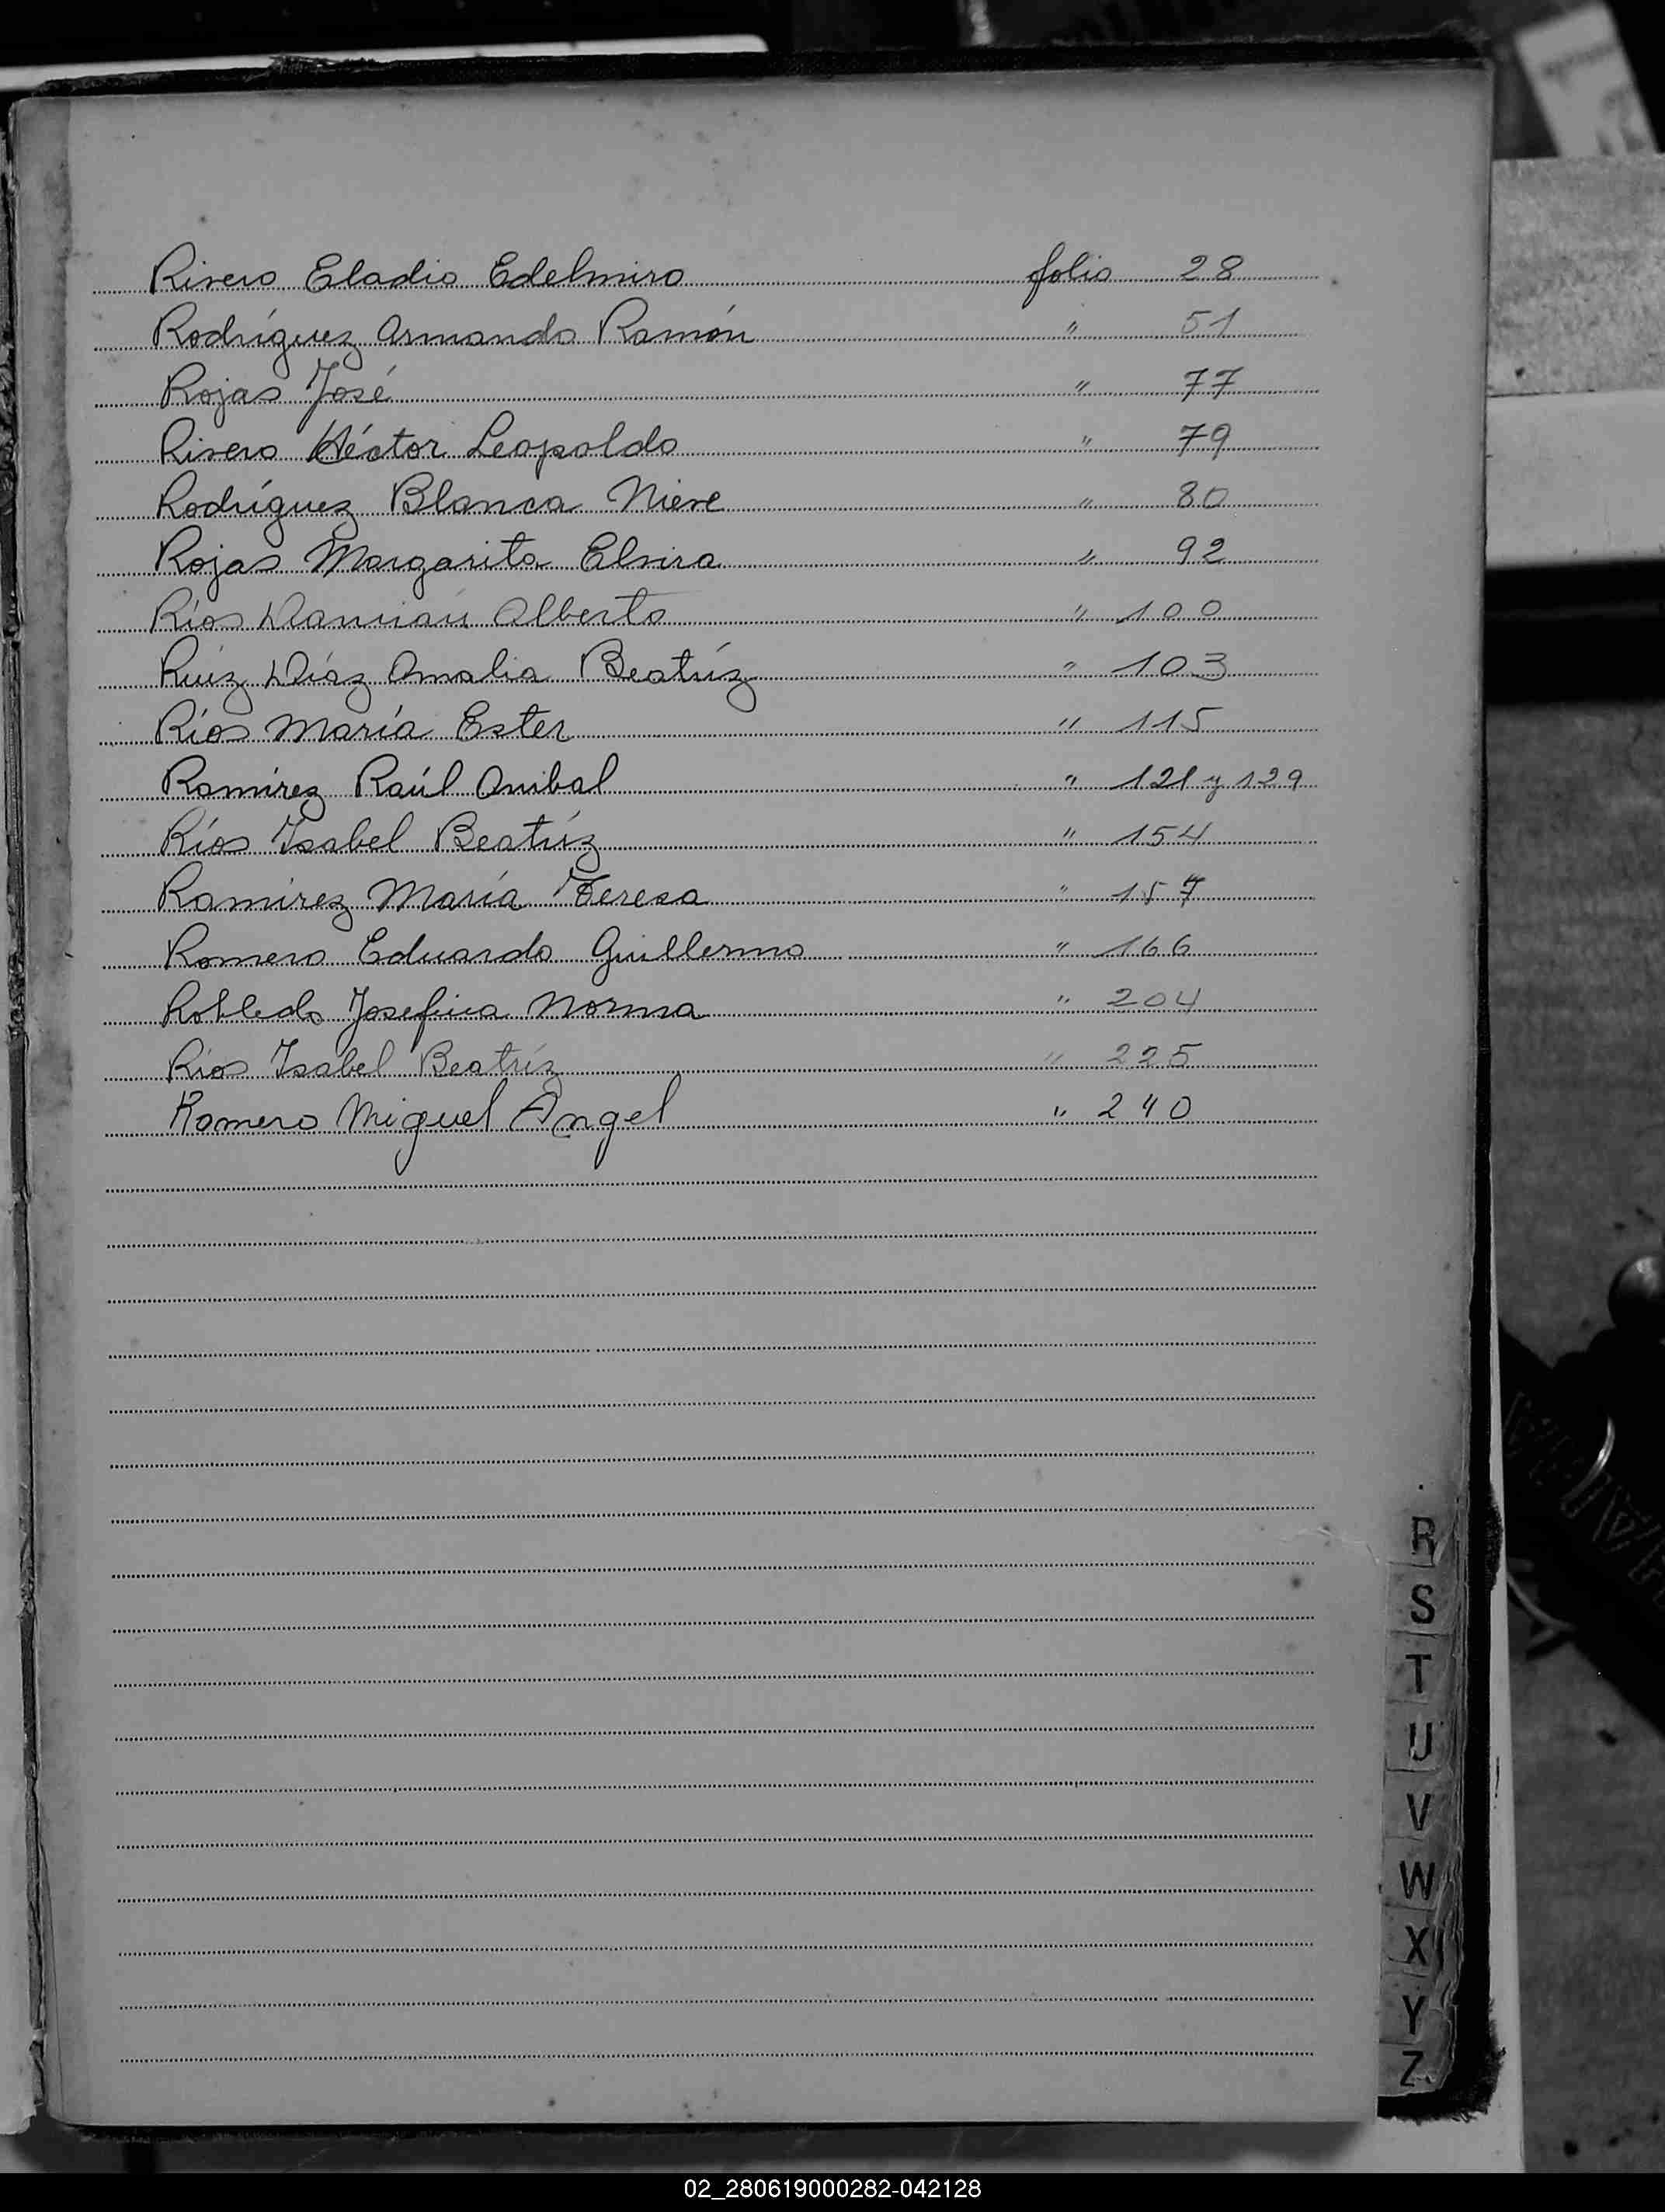 Rivero Eladio Edelmiro folio 28
Rodríguez Armando Ramón " 51
Rojas José " 77
Rivero Héctor Leopoldo " 79
Rodríguez Blanca Nieve " 80
Rojas Margarita Elvira " 92
Ríos Damián Alberto " 100
Ruíz Díaz Amalia Beatríz " 103
Ríos María Ester " 115
Ramírez Raúl Anibal " 121 y 129
Ríos Isabel Beatríz " 154
Ramírez María Teresa " 157
Romero Eduardo Guillermo " 166
Robledo Josefina Norma " 204
Ríos Isabel Beatríz " 225
Romero Miguel Angel " 240
R
S
T
U
V
W
X
Y
Z
02_280619000282-042128